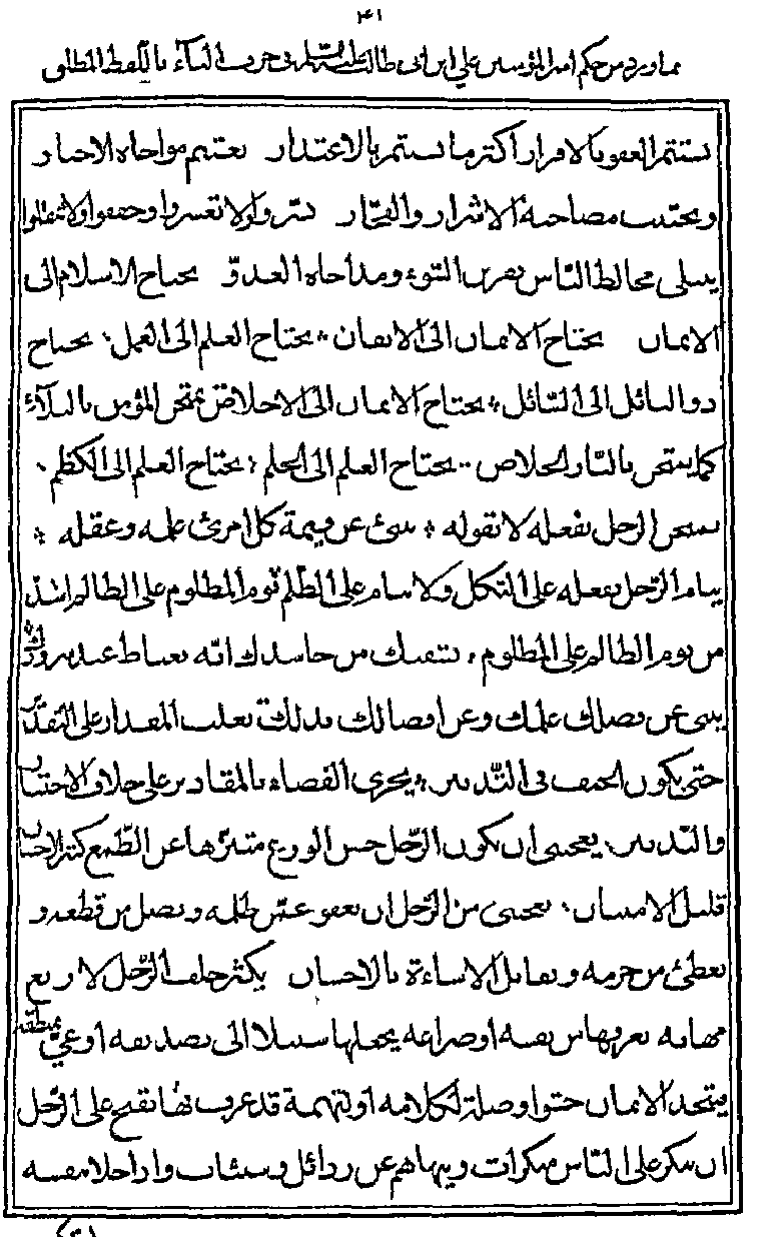 ٤١
مما ورد من حكم امير المؤمنين علي ابن ابي طالب عليه السلام في حرف الياء باللفظ المطلق
يستثمر العفو بالاقرار اكثر مما يستثمر بالاعتذار يغتنم مواخاة الاخيار
ويجتنب مصاحبة الاشرار والفجّار يسّروا ولا تعسروا وخففوا ولا تثقلوا
يبتلى مخالط النّاس بقرين السّوء ومداجاة العدوّ يحتاج الاسلام الى
الايمان يحتاج الايمان الى الايقان يحتاج العلم الى العمل يحتاج
ذو النائل الى السّائل يحتاج الايمان الى الاخلاص يمتحن المؤمن بالبلاء
كما يمتحن بالنّار الخلاص يحتاج العلم الى الحلم يحتاج العلم الى الكظم
يمتحن الرّجل بفعله لا بقوله ينبئ عن قيمة كل امرئ علمه وعقله
ينام الرّجل على الثكل ولا ينام على الظّلم يوم المظلوم على الظالم اشدّ
من يوم الظالم على المظلوم يشفيك من حاسدك انّه يغتاظ عند سرورك
ينبئ عن فضلك علمك وعن افضالك بذلك يغلب المقدار على التقدير
حتى يكون الحتف في التّدبير يجرى القضاء بالمقادير على خلاف الاختيار
والتّدبير يعجبني ان يكون الرّجل حسن الورع متنزّها عن الطّمع كثير الاحسان
قليل الامتنان يعجبني من الرّجل ان يعفو عمّن ظلمه ويصل من قطعه و
يعطي من حرمه ويقابل الاساءة بالاحسان يكثر حلف الرّجل لاربع
مهانة يعرفها من نفسه او ضراعة يجعلها سبيلا الى تصديقه او عيّ بمنطقه
فيتخذ الايمان حشوا وصلة لكلامه او لتهمة قد عرف بها يقبح على الرّجل
ان ينكر على النّاس منكرات وينهاهم عن رذائل وسيئات واذا خلا بنفسه